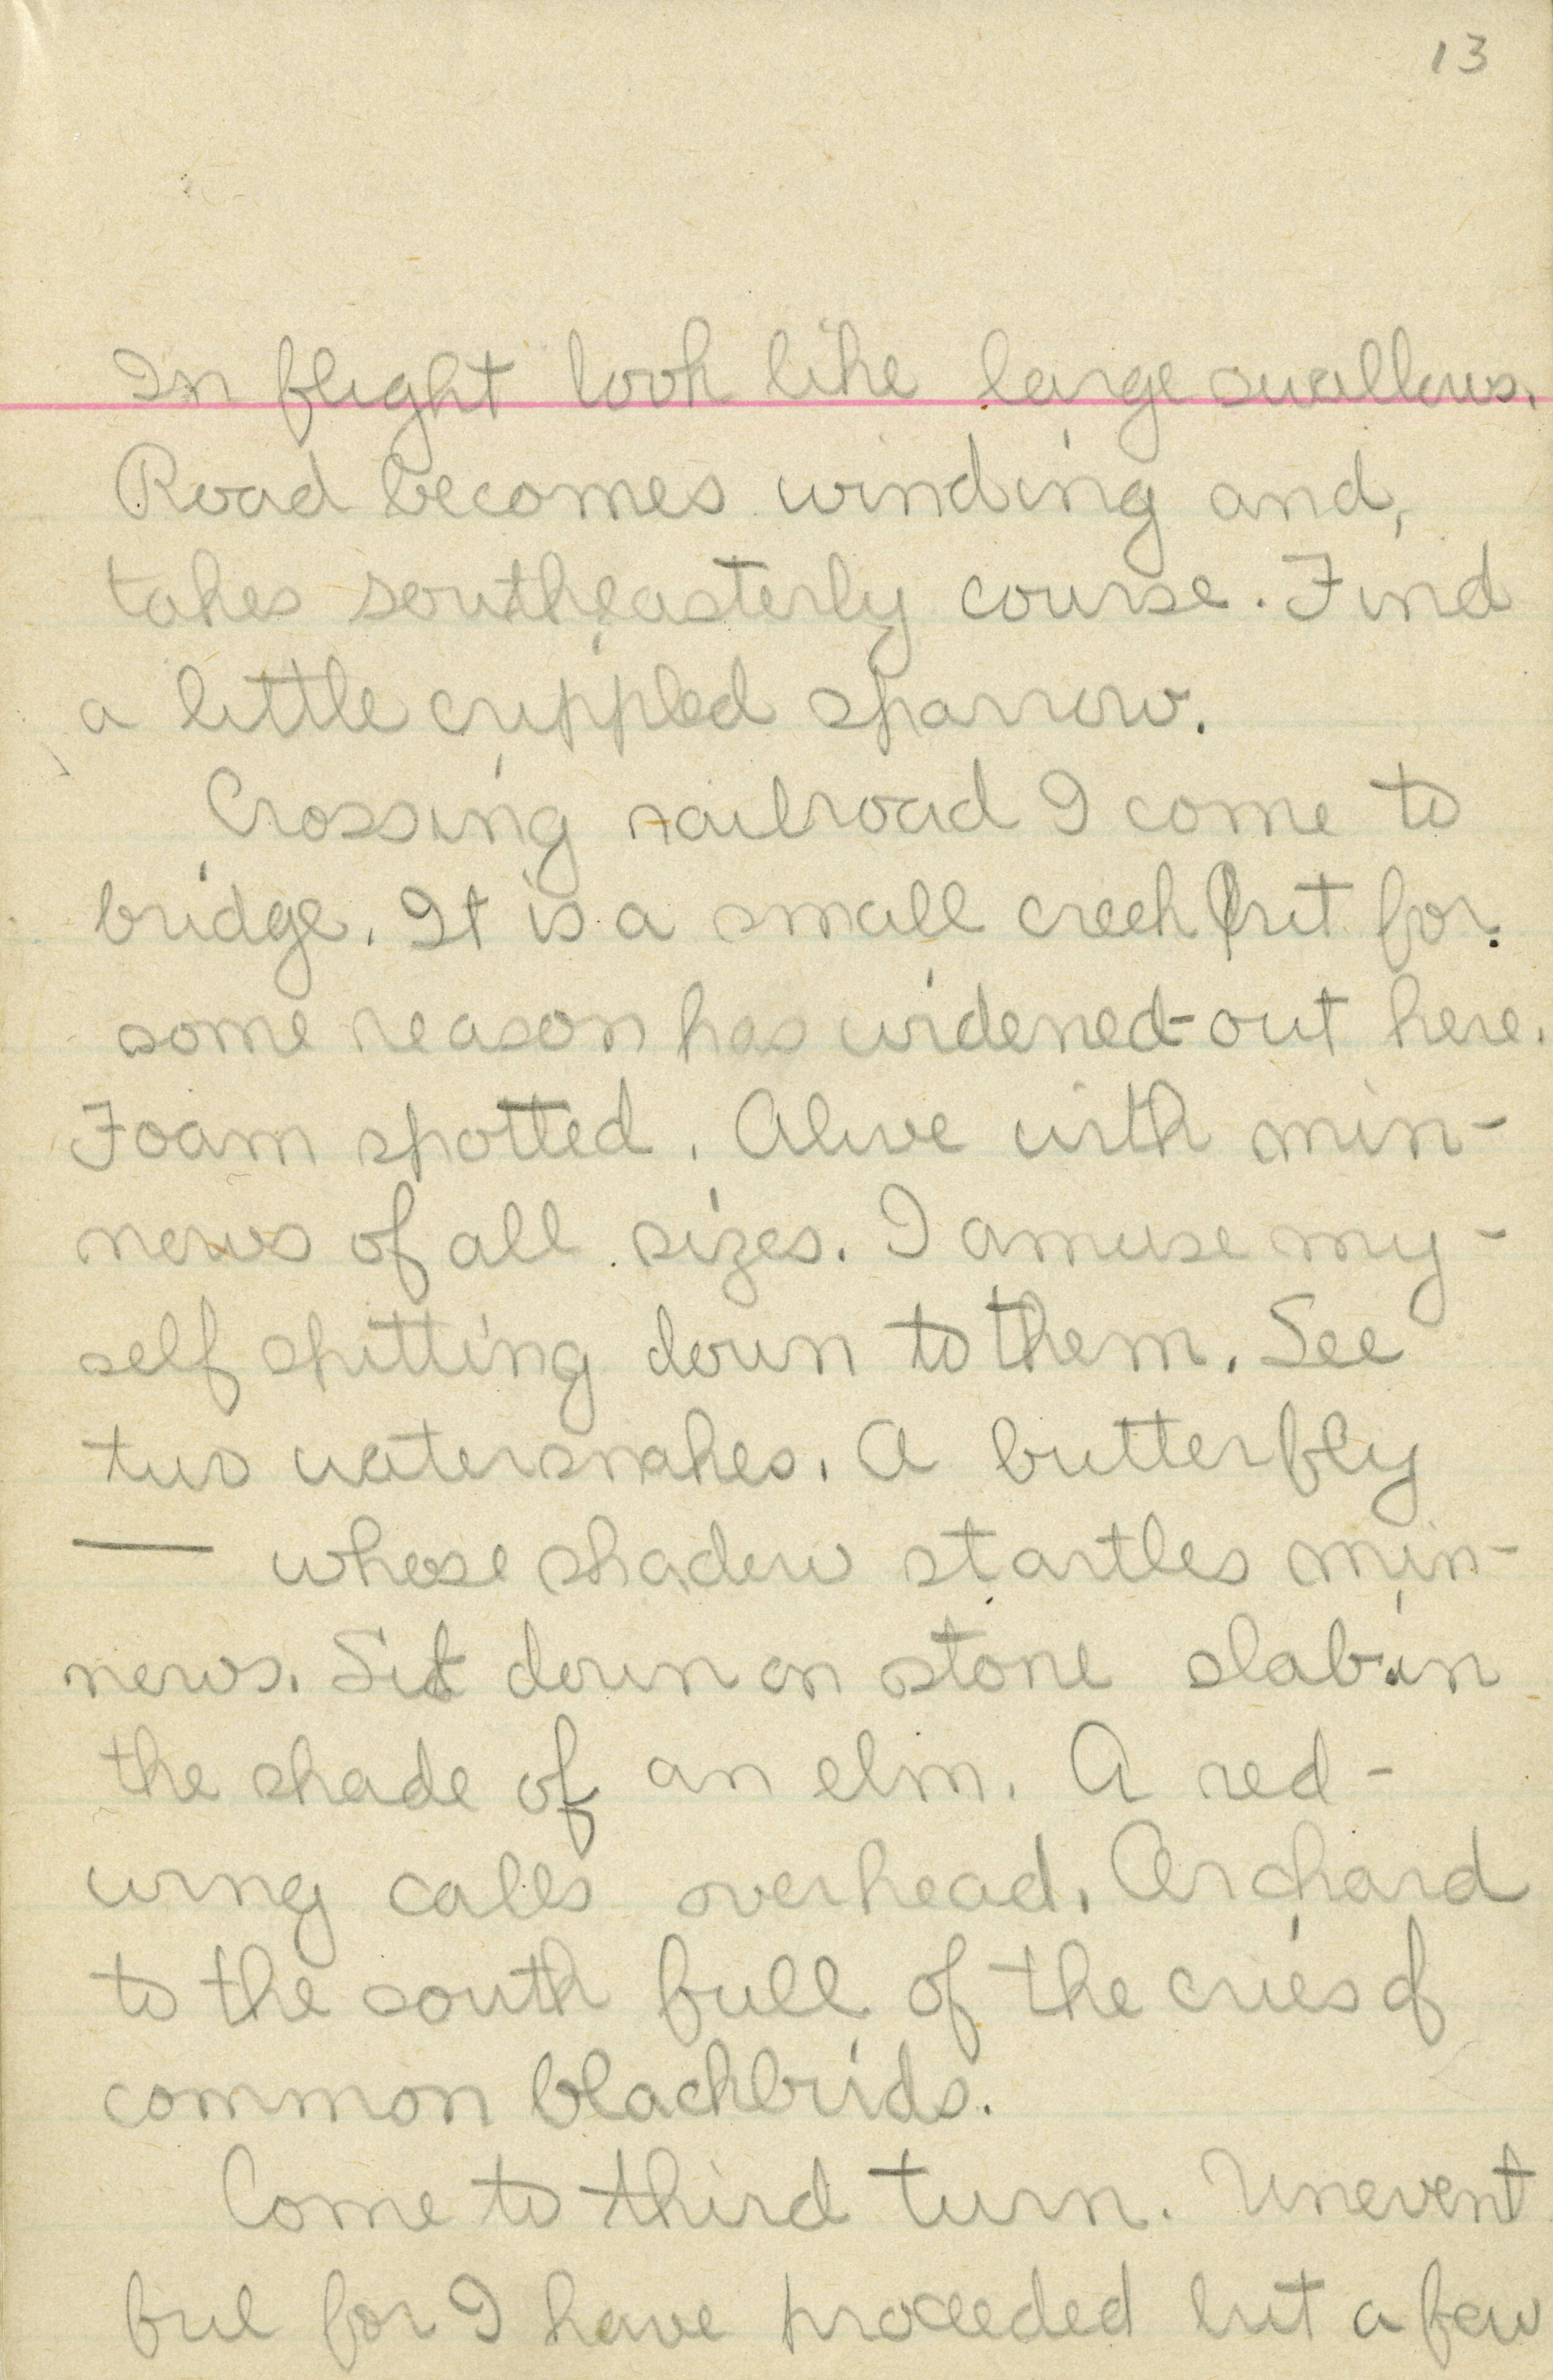 13
In flight look like large swallows.
Road becomes winding and,
takes southeasterly course. Find
a little crippled sparrow.
Crossing railroad I come to
bridge. It is a small creek but for
some reason has widened out here.
Foam spotted. Alive with min-
nows of all sizes. I amuse my-
self spitting down to them. See
two watersnakes. A butterfly
— whose shadow startles min-
nows. Sit down on stone slab in
the shade of an elm. A red-
wing calls overhead. Orchard
to the south full of the cries of
common blackbirds.
Come to third turn. Unevent
ful for I have proceeded but a few